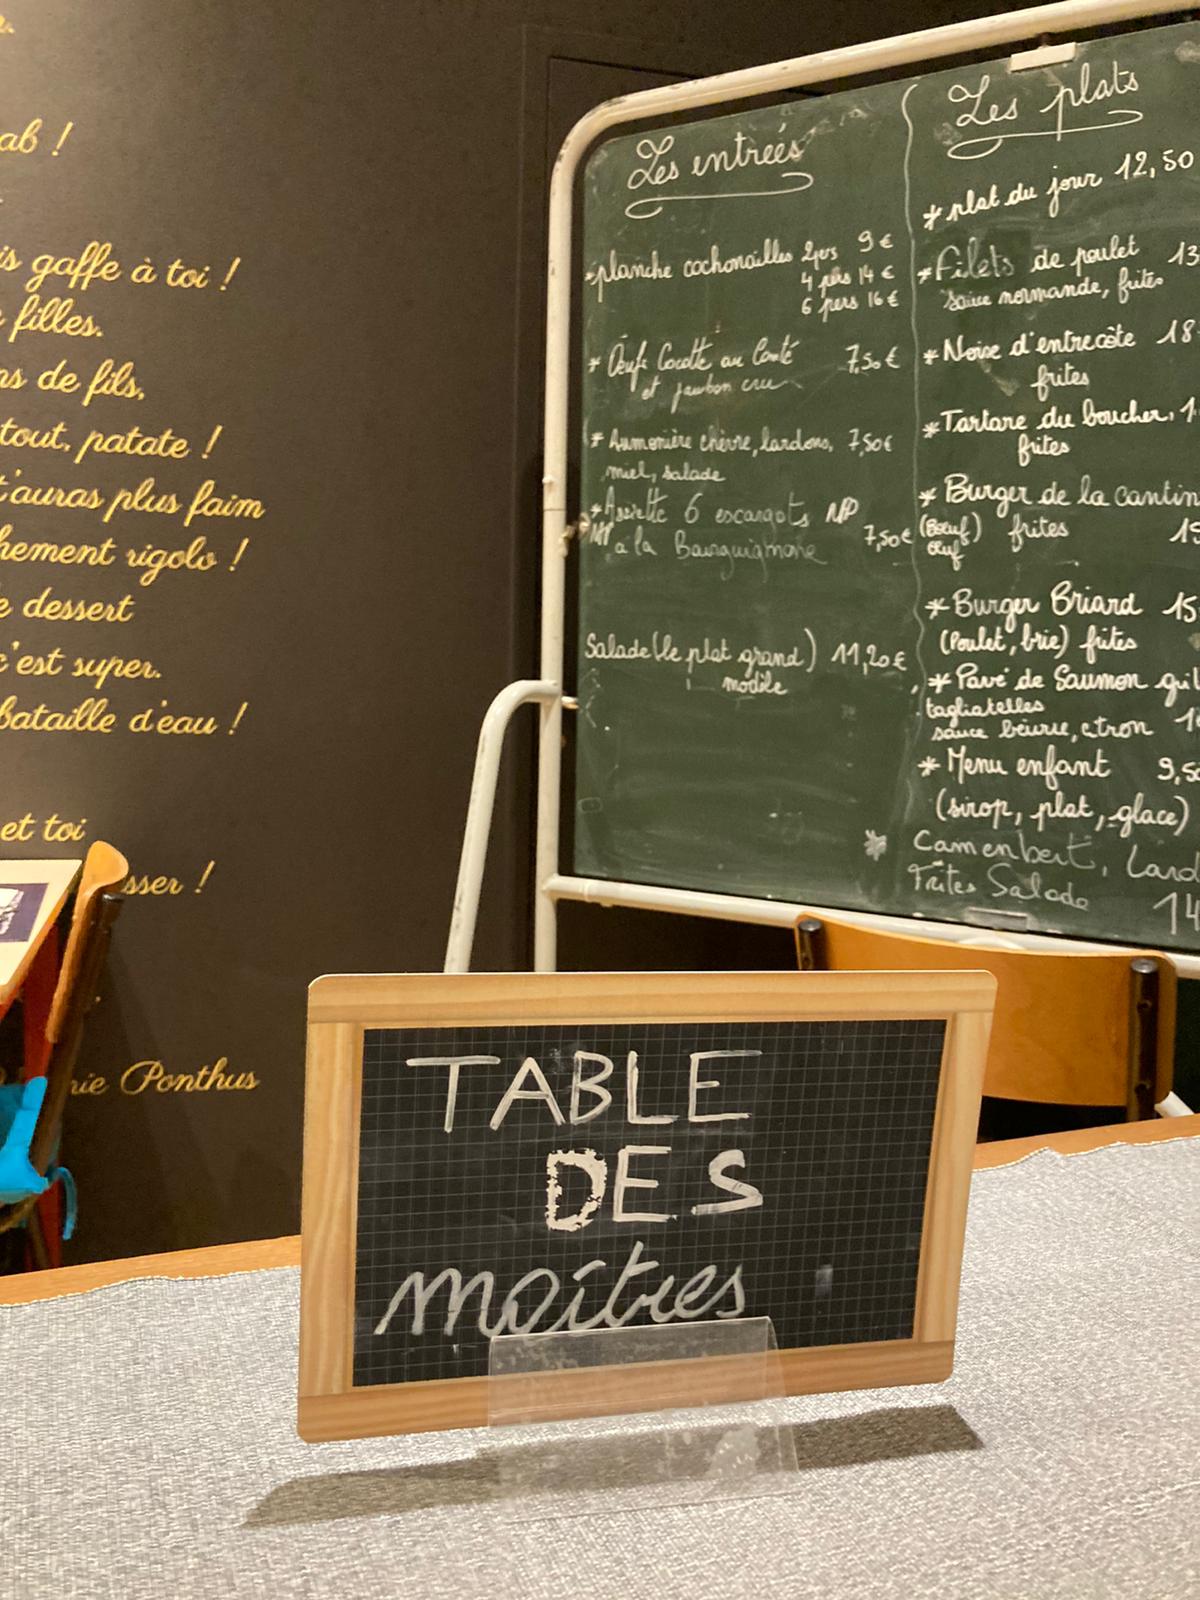 ab !
is gaffe à toi !
filles.
ns de fils,
tout, patate !
t'auras plus faim
hement rigolo !
e dessert
c'est super.
bataille d'eau !
et toi
sser !
nie Ponthus
Les entreés
*planche cochonailles 2pers 9€
4 pers 14€
6 pers 16€
* Œufs Cocotte au Comté 7,50€
et jambon cru
* Aumonière chèvre, lardons, 7,50€
miel, salade
* Assiette 6 escargots MP
MP à la Bourguignone 7,50€
Salade (le plat grand) 11,20€
modèle
Les plats
* plat du jour 12,50
* Filets de poulet 13
sauce normande, frites
* Noixe d'entrecôte 18
frites
* Tartare du boucher, 1
frites
* Burger de la cantin
(Bœuf) frites 15
œuf
* Burger Briard 15
(Poulet, brie) frites
* Pavé de Saumon gril
tagliatelles
sauce beurre, citron 1
* Menu enfant 9,50
(sirop, plat, glace)
* Camenbert, Lard
Frites Salade 14
TABLE
DES
maîtres